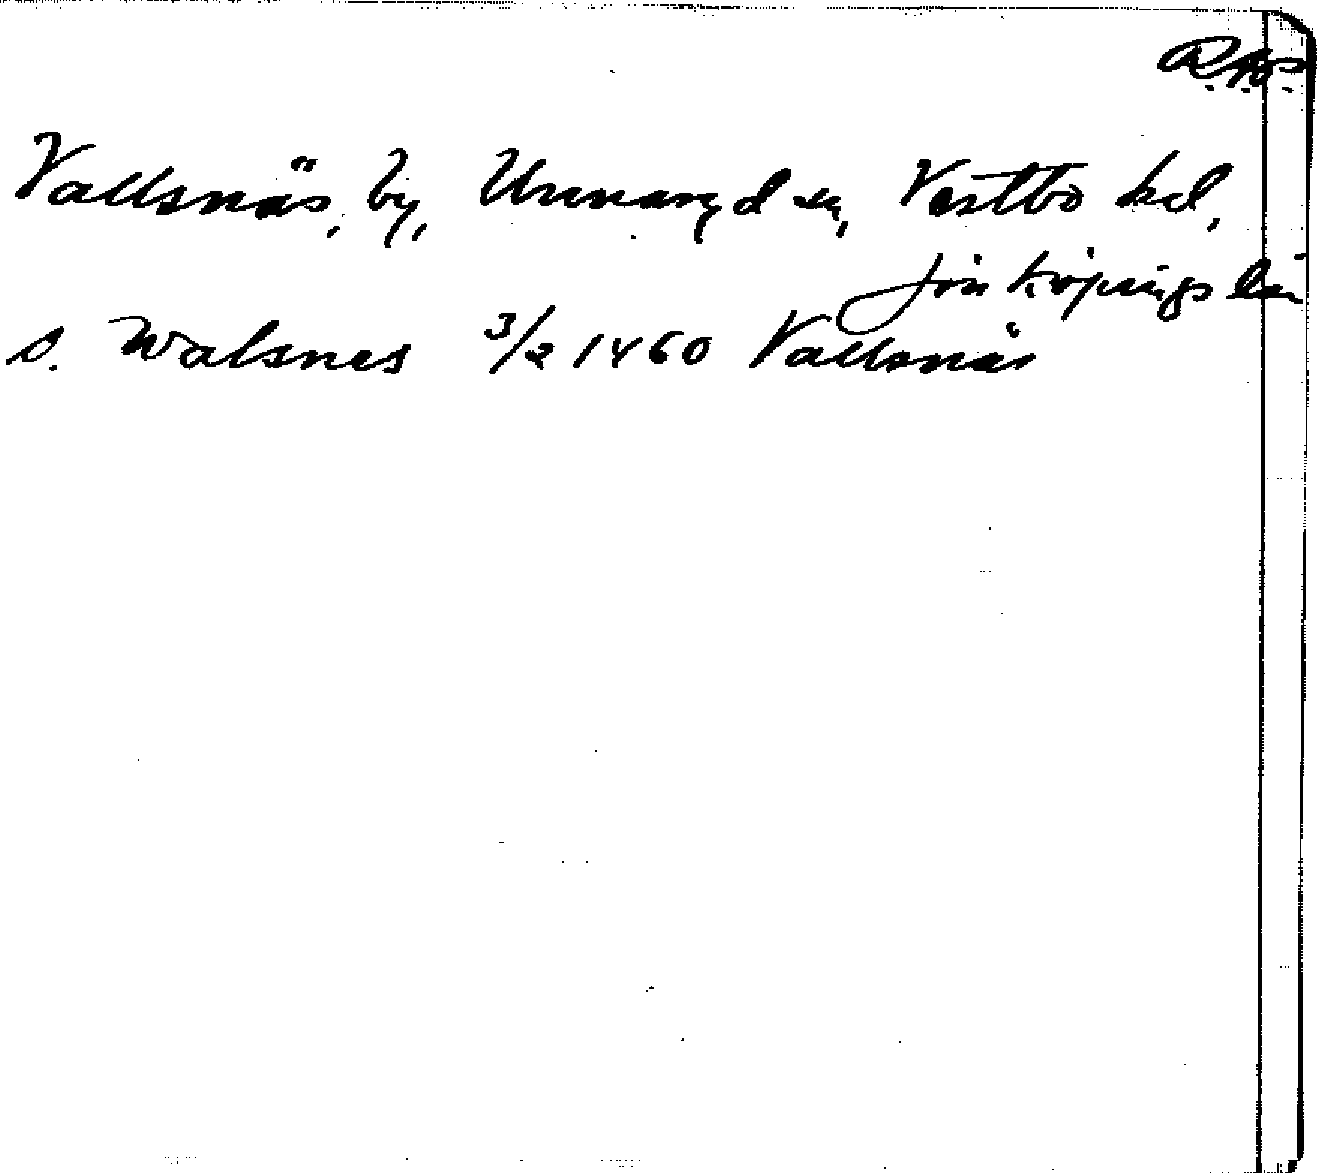 Vallsnäs, by, Unnaryd sn, Vestbo hd,
Jönköpings län
s. Walsnes 3/2 1460 Vallsnäs